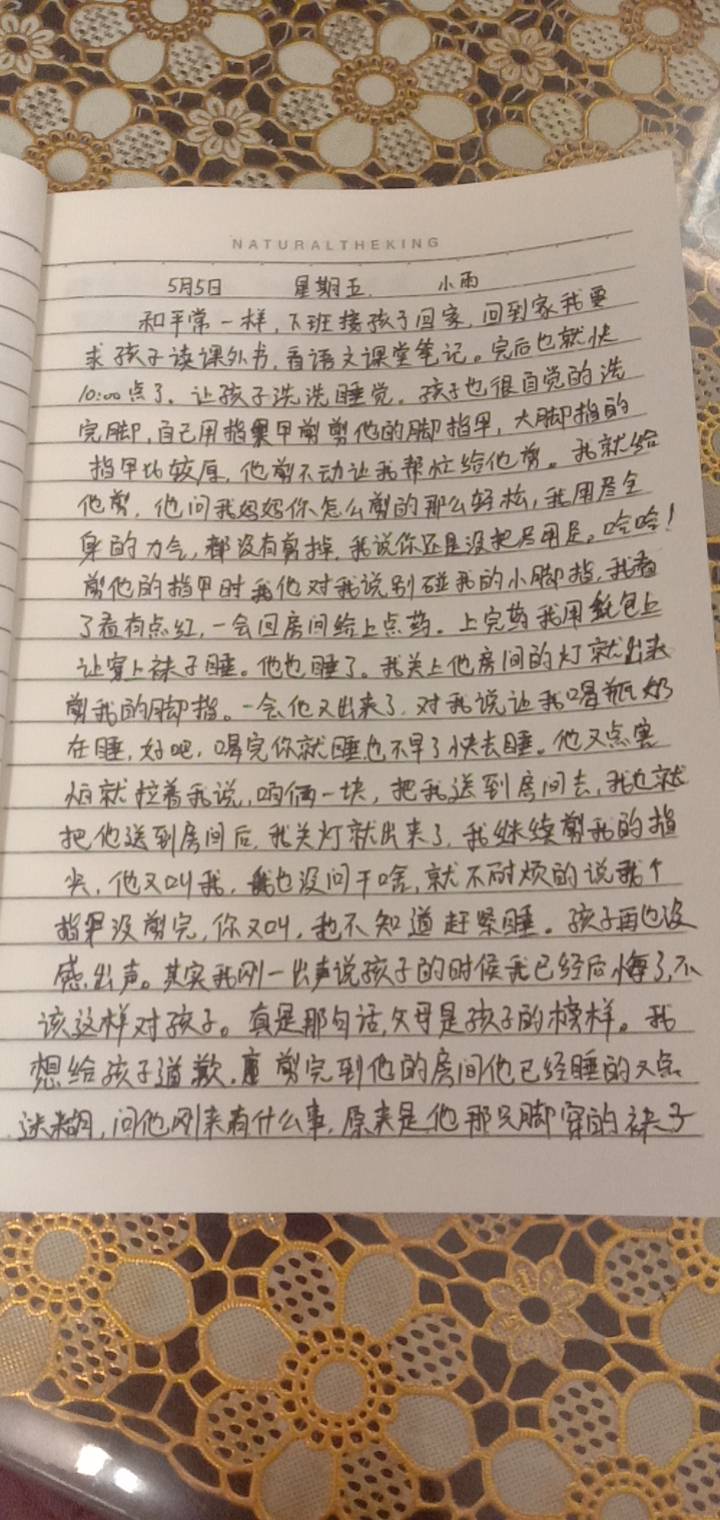 NATURALTHEKING
5月5日 星期五. 小雨
和平常一样,下班接孩子回家,回到家我要
求孩子读课外书,看语文课堂笔记。完后也就快
10:00点了,让孩子洗洗睡觉。孩子也很自觉的洗
完脚,自己用指甲剪剪他的脚指甲,大脚指的
指甲比较厚,他剪不动让我帮忙给他剪。我就给
他剪,他问我妈妈你怎么剪的那么轻松,我用尽全
身的力气,都没有剪掉,我说你还是没把名用足。哈哈!
剪他的指甲时他对我说别碰我的小脚指,我看
了看有点红,一会回房间给上点药。上完药我用纸包上
让穿上袜子睡。他也睡了。我关上他房间的灯就出来
剪我的脚指。一会他又出来了,对我说让我喝瓶奶
在睡,好吧,喝完你就睡也不早了快去睡。他又点害
怕就拉着我说,咱俩一块,把我送到房间去,我也就
把他送到房间后,我关灯就出来了,我继续剪我的指
尖,他又叫我,我也没问干啥,就不耐烦的说我个
指甲没剪完,你又叫,也不知道赶紧睡。孩子再也没
感出声。其实我刚一出声说孩子的时候我已经后悔了,不
该这样对孩子。真是那句话,父母是孩子的榜样。我
想给孩子道歉,剪完到他的房间他已经睡的又点
迷糊,问他刚来有什么事,原来是他那只脚穿的袜子